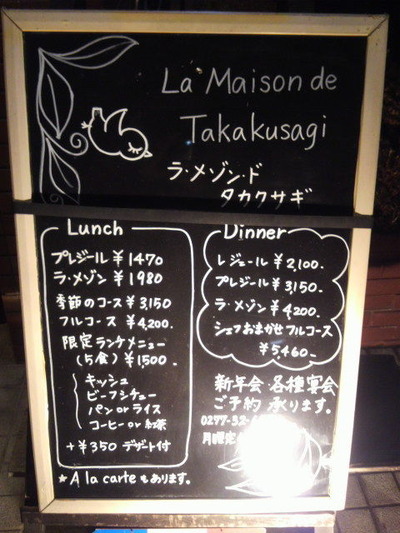 La Maison de
Takakusagi
ラ・メゾンド
タカクサギ
Lunch
プレジール ¥1470
ラ・メゾン ¥1980
季節のコース ¥3,150
フルコース ¥4,200.
限定ランチメニュー
(5食) ¥1500.
キッシュ
ビーフシチュー
パン or ライス
コーヒー or 紅茶
+¥350 デザート付
★ A la carte もあります。
Dinner
レジュール ¥2,100.
プレジール ¥3,150.
ラ・メゾン ¥4,200
シェフおまかせフルコース
¥5,460
新年会・各種宴会
ご予約 承ります。
0277-32-
月曜定